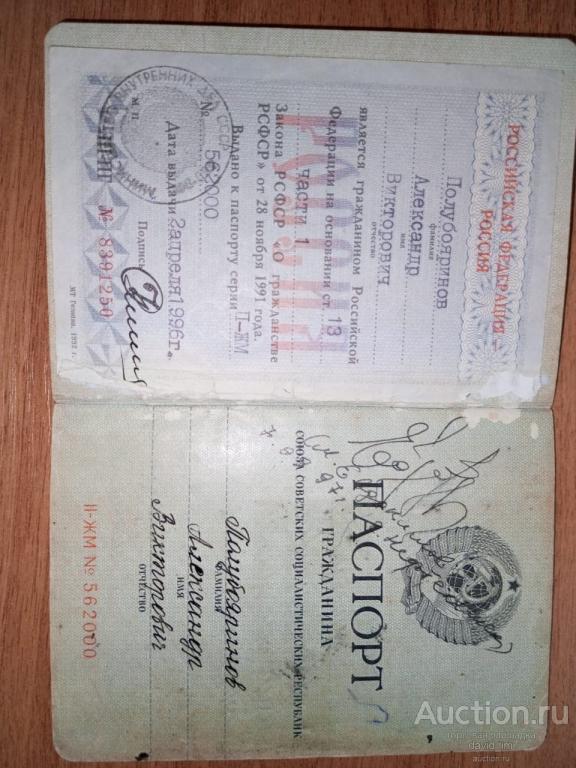 РОССИЙСКАЯ ФЕДЕРАЦИЯ —
РОССИЯ
Полубояринов
фамилия
Александр
имя
Викторович
отчество
является гражданином Российской
Федерации на основании ст. 13
части 1
Закона РСФСР «О гражданстве
РСФСР» от 28 ноября 1991 года.
Выдано к паспорту серии II-ЖМ
№ 562000
Дата выдачи 2 апреля 1996 г.
М П
Подпись
№ 8391250
МТ Гознака. 1992 г.
ПАСПОРТ
ГРАЖДАНИНА
СОЮЗА СОВЕТСКИХ СОЦИАЛИСТИЧЕСКИХ РЕСПУБЛИК
Полубояринов
ФАМИЛИЯ
Александр
ИМЯ
Викторович
ОТЧЕСТВО
II-ЖМ № 562000
Auction.ru
торговая площадка
david.rim
auction.ru